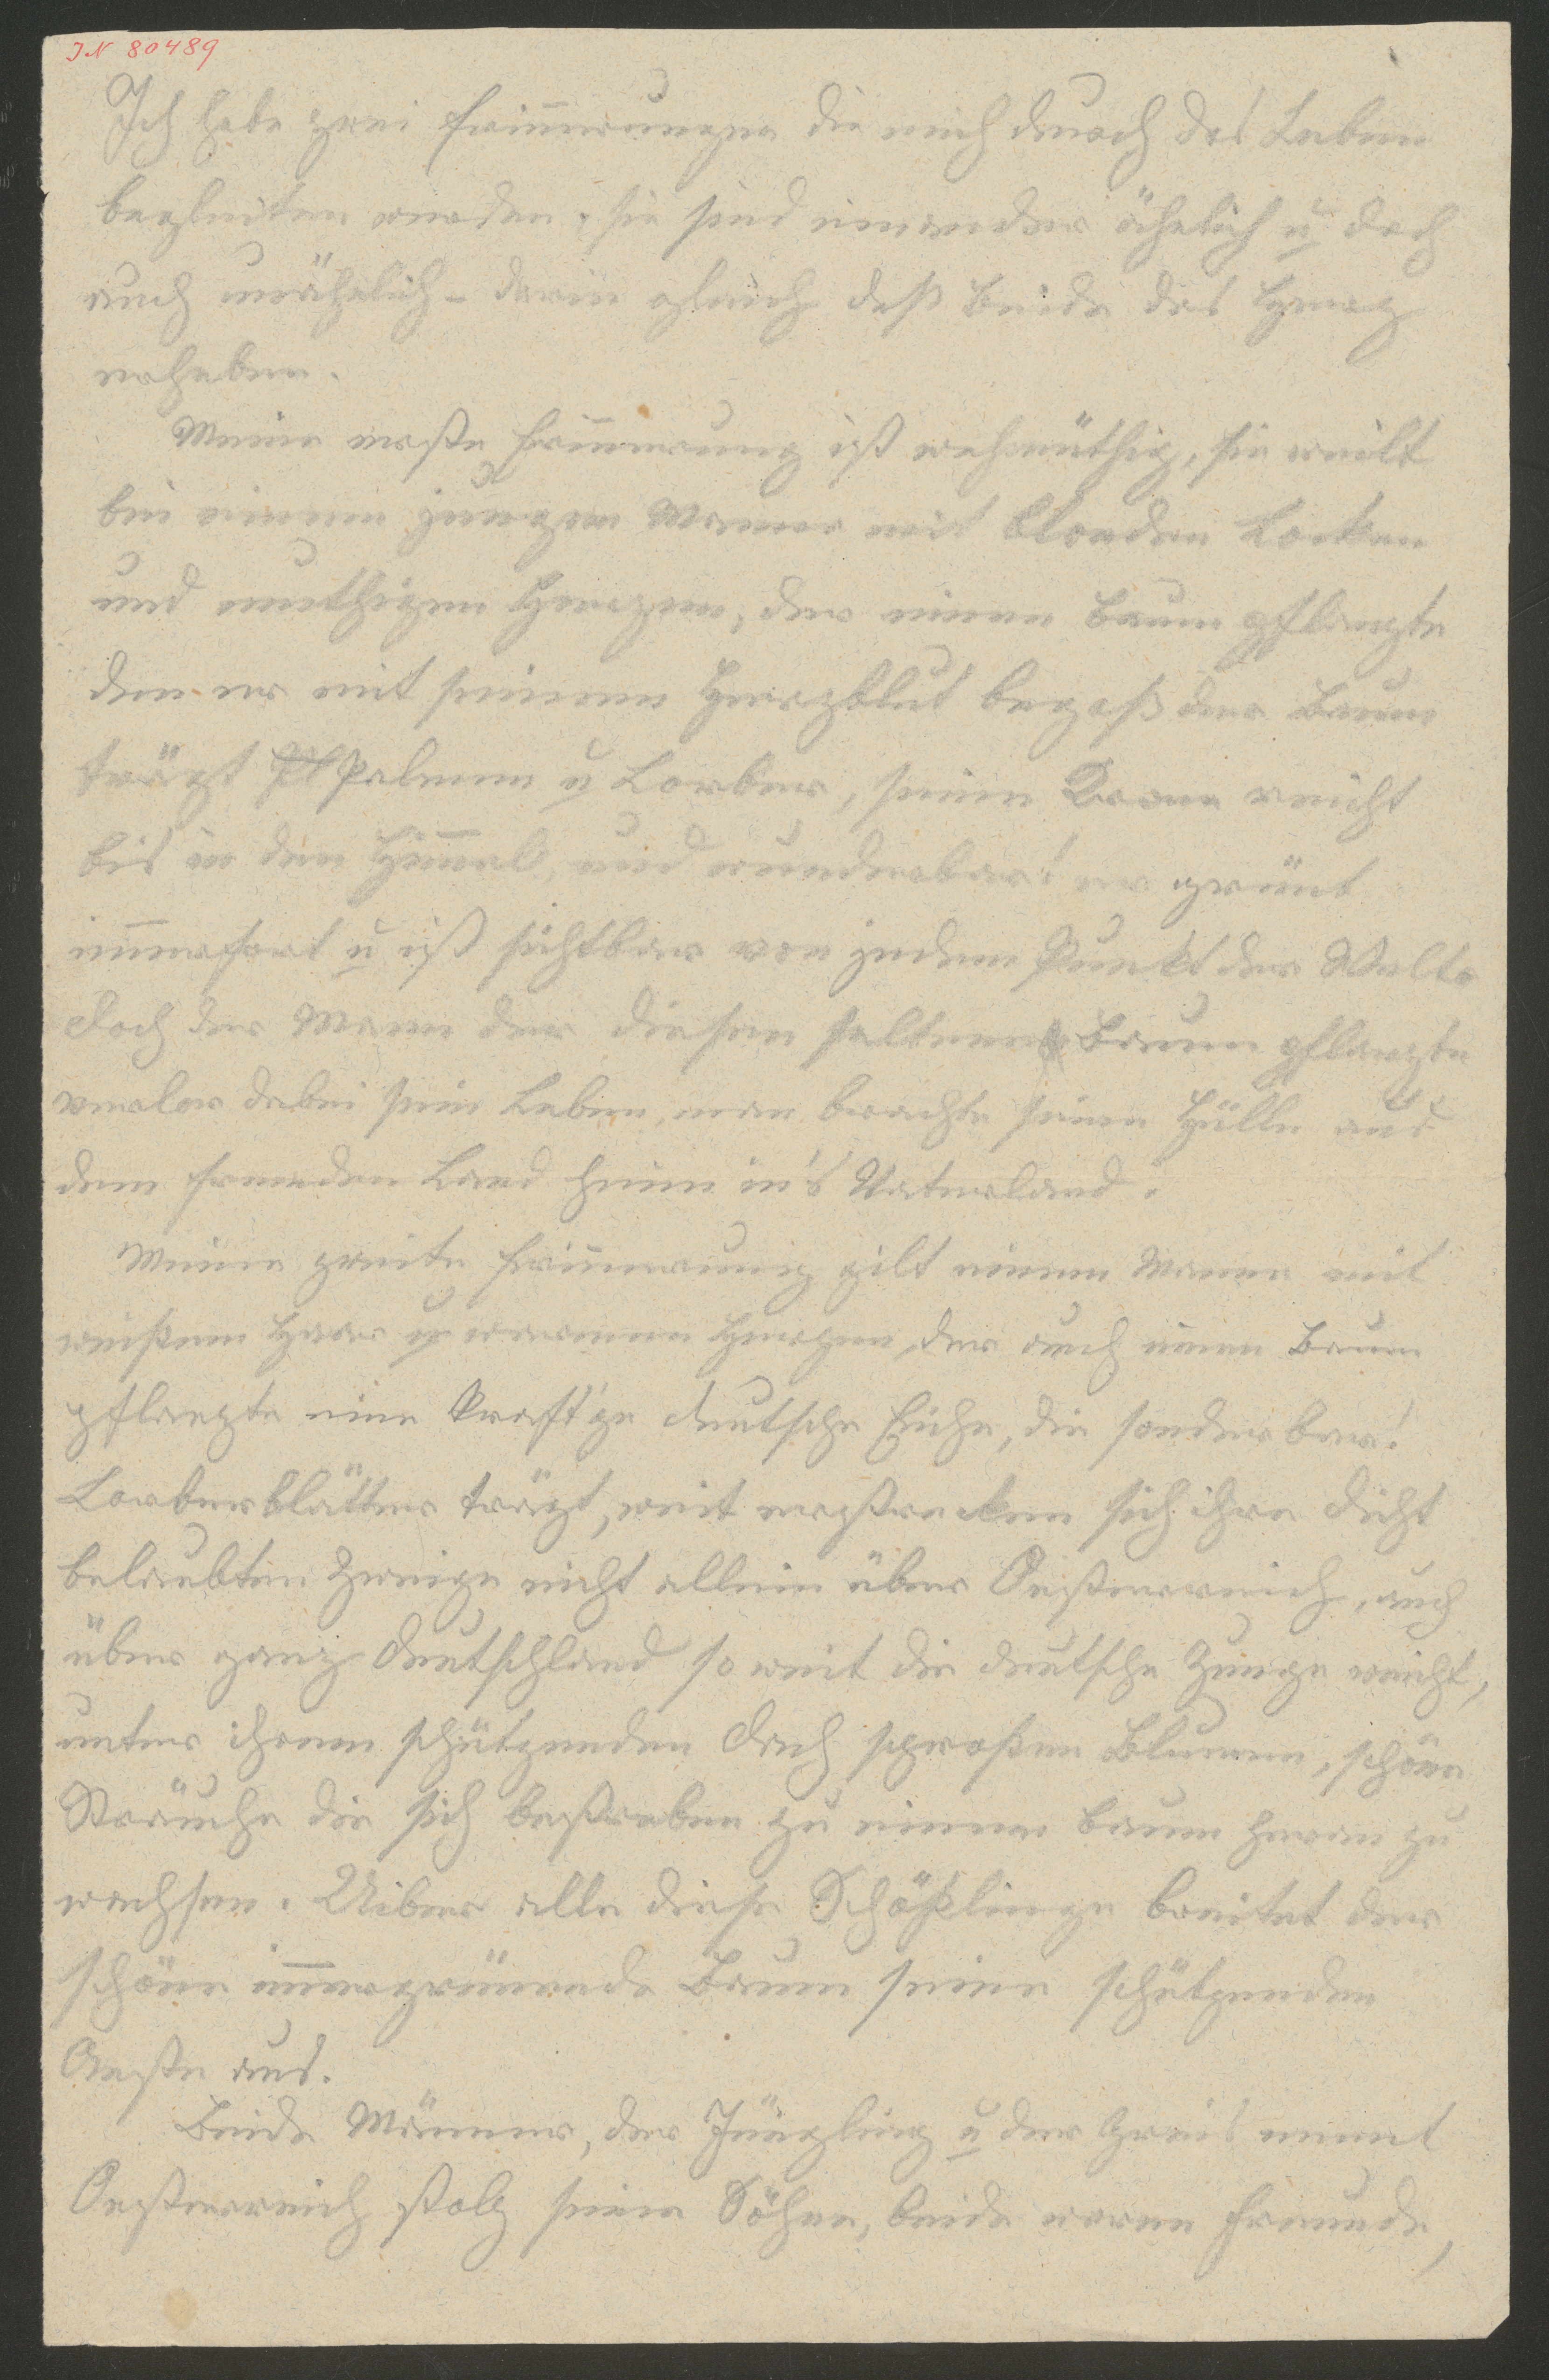 IN 80489
Ich habe zwei Erin̄erungen die mich durch das Leben
begleiten werden, sie sind einander ähnlich u doch
auch unähnlich - darin gleich daß Beide das Herz
erheben.
Meine erste Erin̄erung ist wehmüthig, sie weilt
bei einem jungen Manne mit blonden Locken
und muthigem Herzen, der einen Baum pflanzte
den er mit seinem Herzblut begoß der Baum
trägt Palmen u Lorber, seine Krone reicht
bis in den Him̄el, und wunderbar! er grünt
im̄erfort u ist sichtbar von jedem Punkt der Welt.
Doch der Mann der diesen seltenen Baum pflanzte
verlor dabei sein Leben, man brachte seine Hülle aus
dem fremden Land heim in's Vaterland.
Meine zweite Erin̄erung gilt einem Manne mit
weißem Haar u warmen Herzen, der auch einen Baum
pflanzte eine kraft'ge deutsche Eiche, die sonderbar!
Lorberblätter trägt, weit erstrecken sich ihre dicht
belaubten Zweige nicht allein über Oesterreich, auch
über ganz Deutschland so weit die deutsche Zunge reicht,
unter ihrem schützenden Dach sproßen Blumen, schöne
Sträuche die sich bestreben zu einem Baum heran zu
wachsen. Uiber alle diese Schößlinge breitet der
schöne im̄ergrünende Baum seine schützenden
Aeste aus.
Beide Männer, der Jüngling u der Greis nennt
Oesterreich stolz seine Söhne, beide waren Freunde,